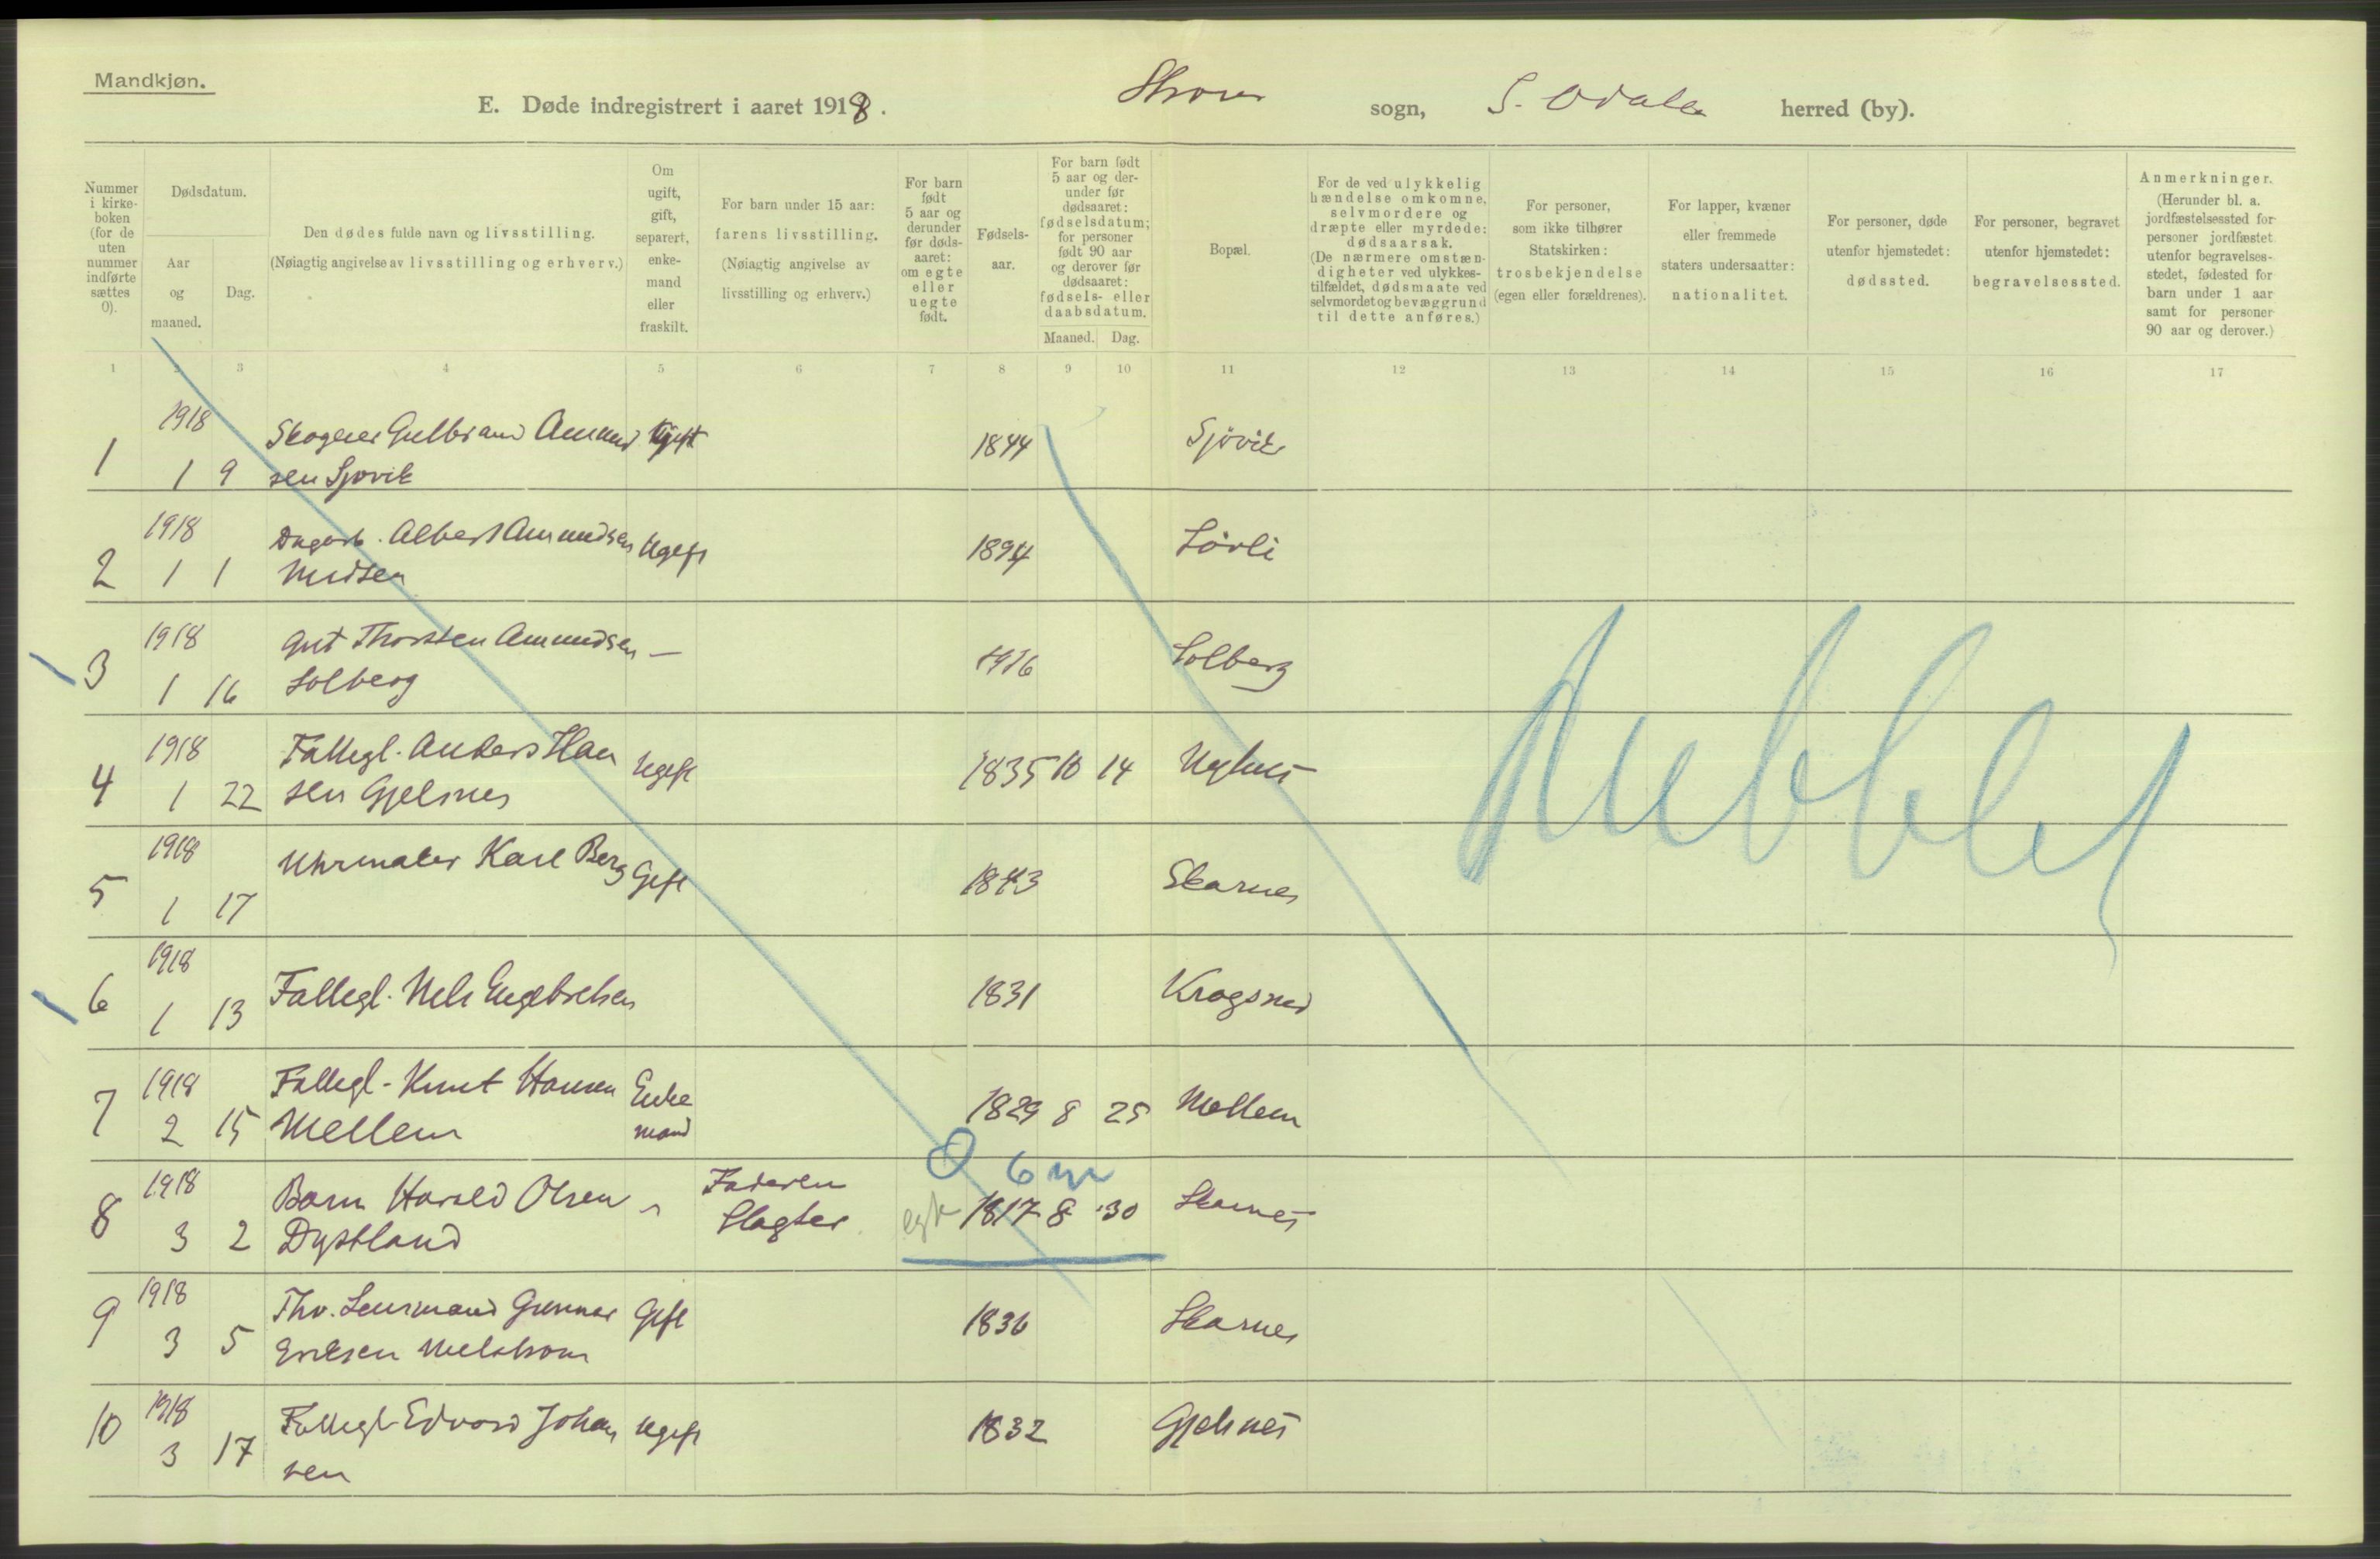 Mandkjøn.
E. Døde indregistrert i aaret 1918. Strøm sogn, S. Odalen herred (by).
Nummer i kirke- boken (for de uten nummer indførte sættes 0).
Dødsdatum.
Aar og maaned.
Dag.
Den dødes fulde navn og livsstilling.
(Nøiagtig angivelse av livsstilling og erhverv.)
Om ugift, gift, separert, enke- mand eller fraskilt.
For barn under 15 aar:
farens livsstilling.
(Nøiagtig angivelse av
livsstilling og erhverv.)
For barn født 5 aar og derunder før døds- aaret: om egte eller uegte født.
Fødsels- aar.
For barn født 5 aar og der- under før dødsaaret: fødselsdatum; for personer født 90 aar og derover før dødsaaret: fødsels- eller daabsdatum.
Maaned. Dag.
Bopæl.
For de ved ulykkelig hændelse omkomne, selvmordere og dræpte eller myrdede: dødsaarsak. (De nærmere omstæn- digheter ved ulykkes- tilfældet, dødsmaate ved selvmordet og bevæggrund til dette anføres.)
For personer, som ikke tilhører Statskirken: trosbekjendelse (egen eller forældrenes).
For lapper, kvæner eller fremmede staters undersaatter: nationalitet.
For personer, døde utenfor hjemstedet: dødssted.
For personer, begravet utenfor hjemstedet: begravelsessted.
Anmerkninger.
(Herunder bl. a. jordfæstelsessted for personer jordfæstet utenfor begravelses- stedet, fødested for barn under 1 aar samt for personer 90 aar og derover.)
1 2 3 4 5 6 7 8 9 10 11 12 13 14 15 16 17
1918 Gulbrand Amund Ugift 1844 Sjøvik
1 1 9 sen Sjøvik
1918 Dagarb. Albert Amundsen Ugift 1894 Lövli
2 1 1
1918 Gut Thorsten Amundsen — 1916 Solberg
3 1 16 Solberg
1918 Fattigl. Anders Han Ugift 1835 10 14 Nyhus
4 1 22 sen Gjelsnes
1918 Uhrmaker Karl Berg Gift 1843 Skarnes
5 1 17
1918
6 1 13 Fattigl. Nils Engebretsen 1831
1918 Fattigl. Knut Hansen Enke 1829 8 25 Mellem
7 2 15 Mellem mand
0 6 m
1918 Barn Harald Olsen Faderen egte 1817 8 30 Skarnes
8 3 2 Dystland Slagter
1918 Fhv. Lensmand Gunnar Gift 1836 Skarnes
9 3 5 Eriksen
1918 Fattigl. Edvard Johan Ugift 1832 Gjelsnes
10 3 17 sen
Dubblet